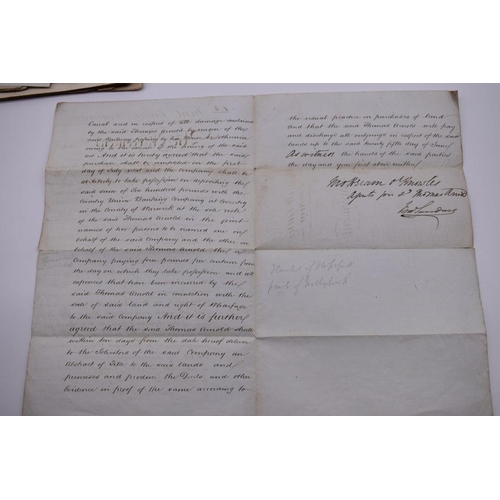 Canal and in respect of all damage sustained
by the said Thomas Arnold by reason of the
said Railway passing by his
of the
as And it is hereby agreed that the said
purchase shall be completed on the first
day of July next and the Company shall be
at liberty to take possession on depositing the
said sum of Six hundred pounds with the
County Union Banking Company at Coventry
in the County of Warwick at the sole risk
of the said Thomas Arnold in the joint
names of two persons to be named one on
behalf of the said Company and the other on
behalf of the said Thomas Arnold the
Company paying five pounds per centum from
the day on which they take possession and all
expenses that have been incurred by the
said Thomas Arnold in connection with the
sale of said land and right of Wharfage
to the said Company And it is further
agreed that the said Thomas Arnold shall
within ten days from the date hereof deliver
to the Solicitors of the said Company an
Abstract of Title to the said lands and
premises and produce the Deeds and other
Evidence in proof of the same according to
the usual practice in purchases of land
And that the said Thomas Arnold will pay
and discharge all outgoings in respect of the said
lands up to the said twenty fifth day of June
As witness the hands of the said parties
the day and year first above written
Agents for